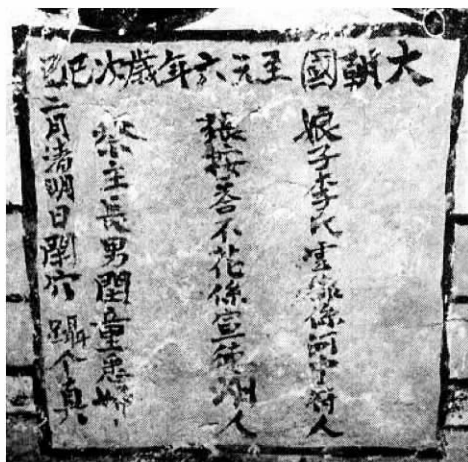 大朝國至元六年歲次己巳
娘子李氏雲線係河中府人
張按答不花係宣德州人
祭主長男閏童悉婦
二月清明日閉穴 躡个真